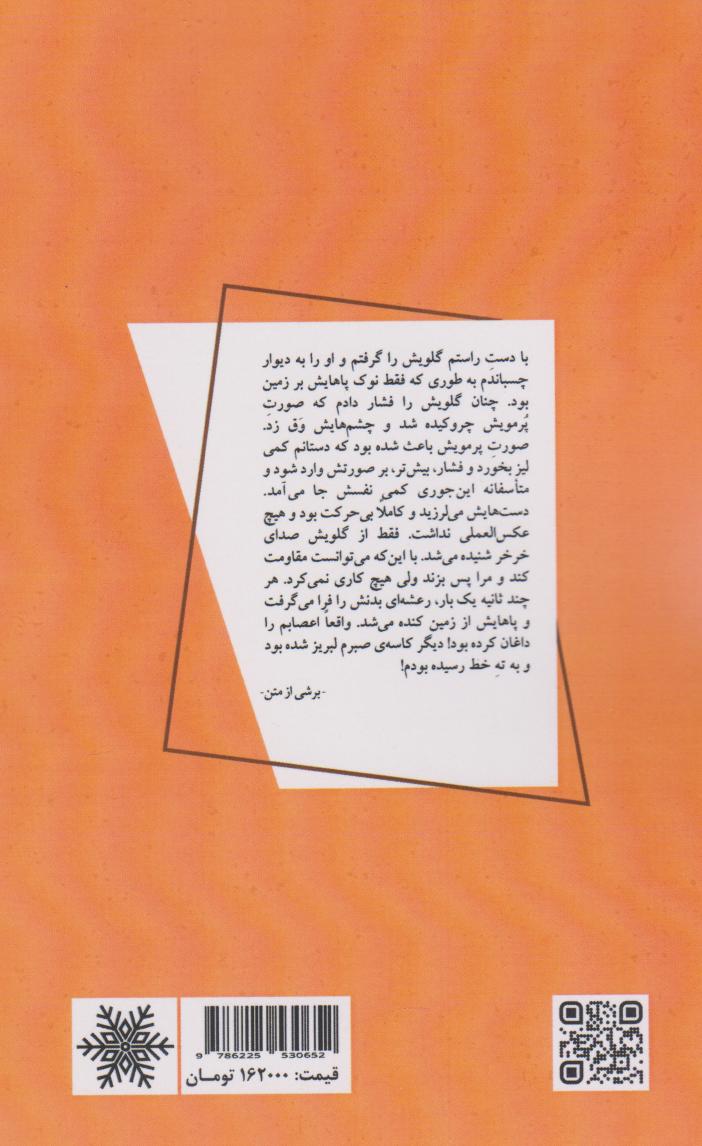 با دستِ راستم گلویش را گرفتم و او را به دیوار
چسباندم به طوری که فقط نوک پاهایش بر زمین
بود. چنان گلویش را فشار دادم که صورتِ
پُرمویش چروکیده شد و چشم‌هایش وَق زد.
صورتِ پرمویش باعث شده بود که دستانم کمی
لیز بخورد و فشار، بیش‌تر، بر صورتش وارد شود و
متأسفانه این‌جوری کمی نفسش جا می‌آمد.
دست‌هایش می‌لرزید و کاملاً بی‌حرکت بود و هیچ
عکس‌العملی نداشت. فقط از گلویش صدای
خرخر شنیده می‌شد. با این‌که می‌توانست مقاومت
کند و مرا پس بزند ولی هیچ کاری نمی‌کرد. هر
چند ثانیه یک بار، رعشه‌ای بدنش را فرا می‌گرفت
و پاهایش از زمین کنده می‌شد. واقعاً اعصابم را
داغان کرده بود! دیگر کاسه‌ی صبرم لبریز شده بود
و به تهِ خط رسیده بودم!
-برشی از متن-
9 786225 530652
قیمت: ۱۶۲۰۰۰ تومـان